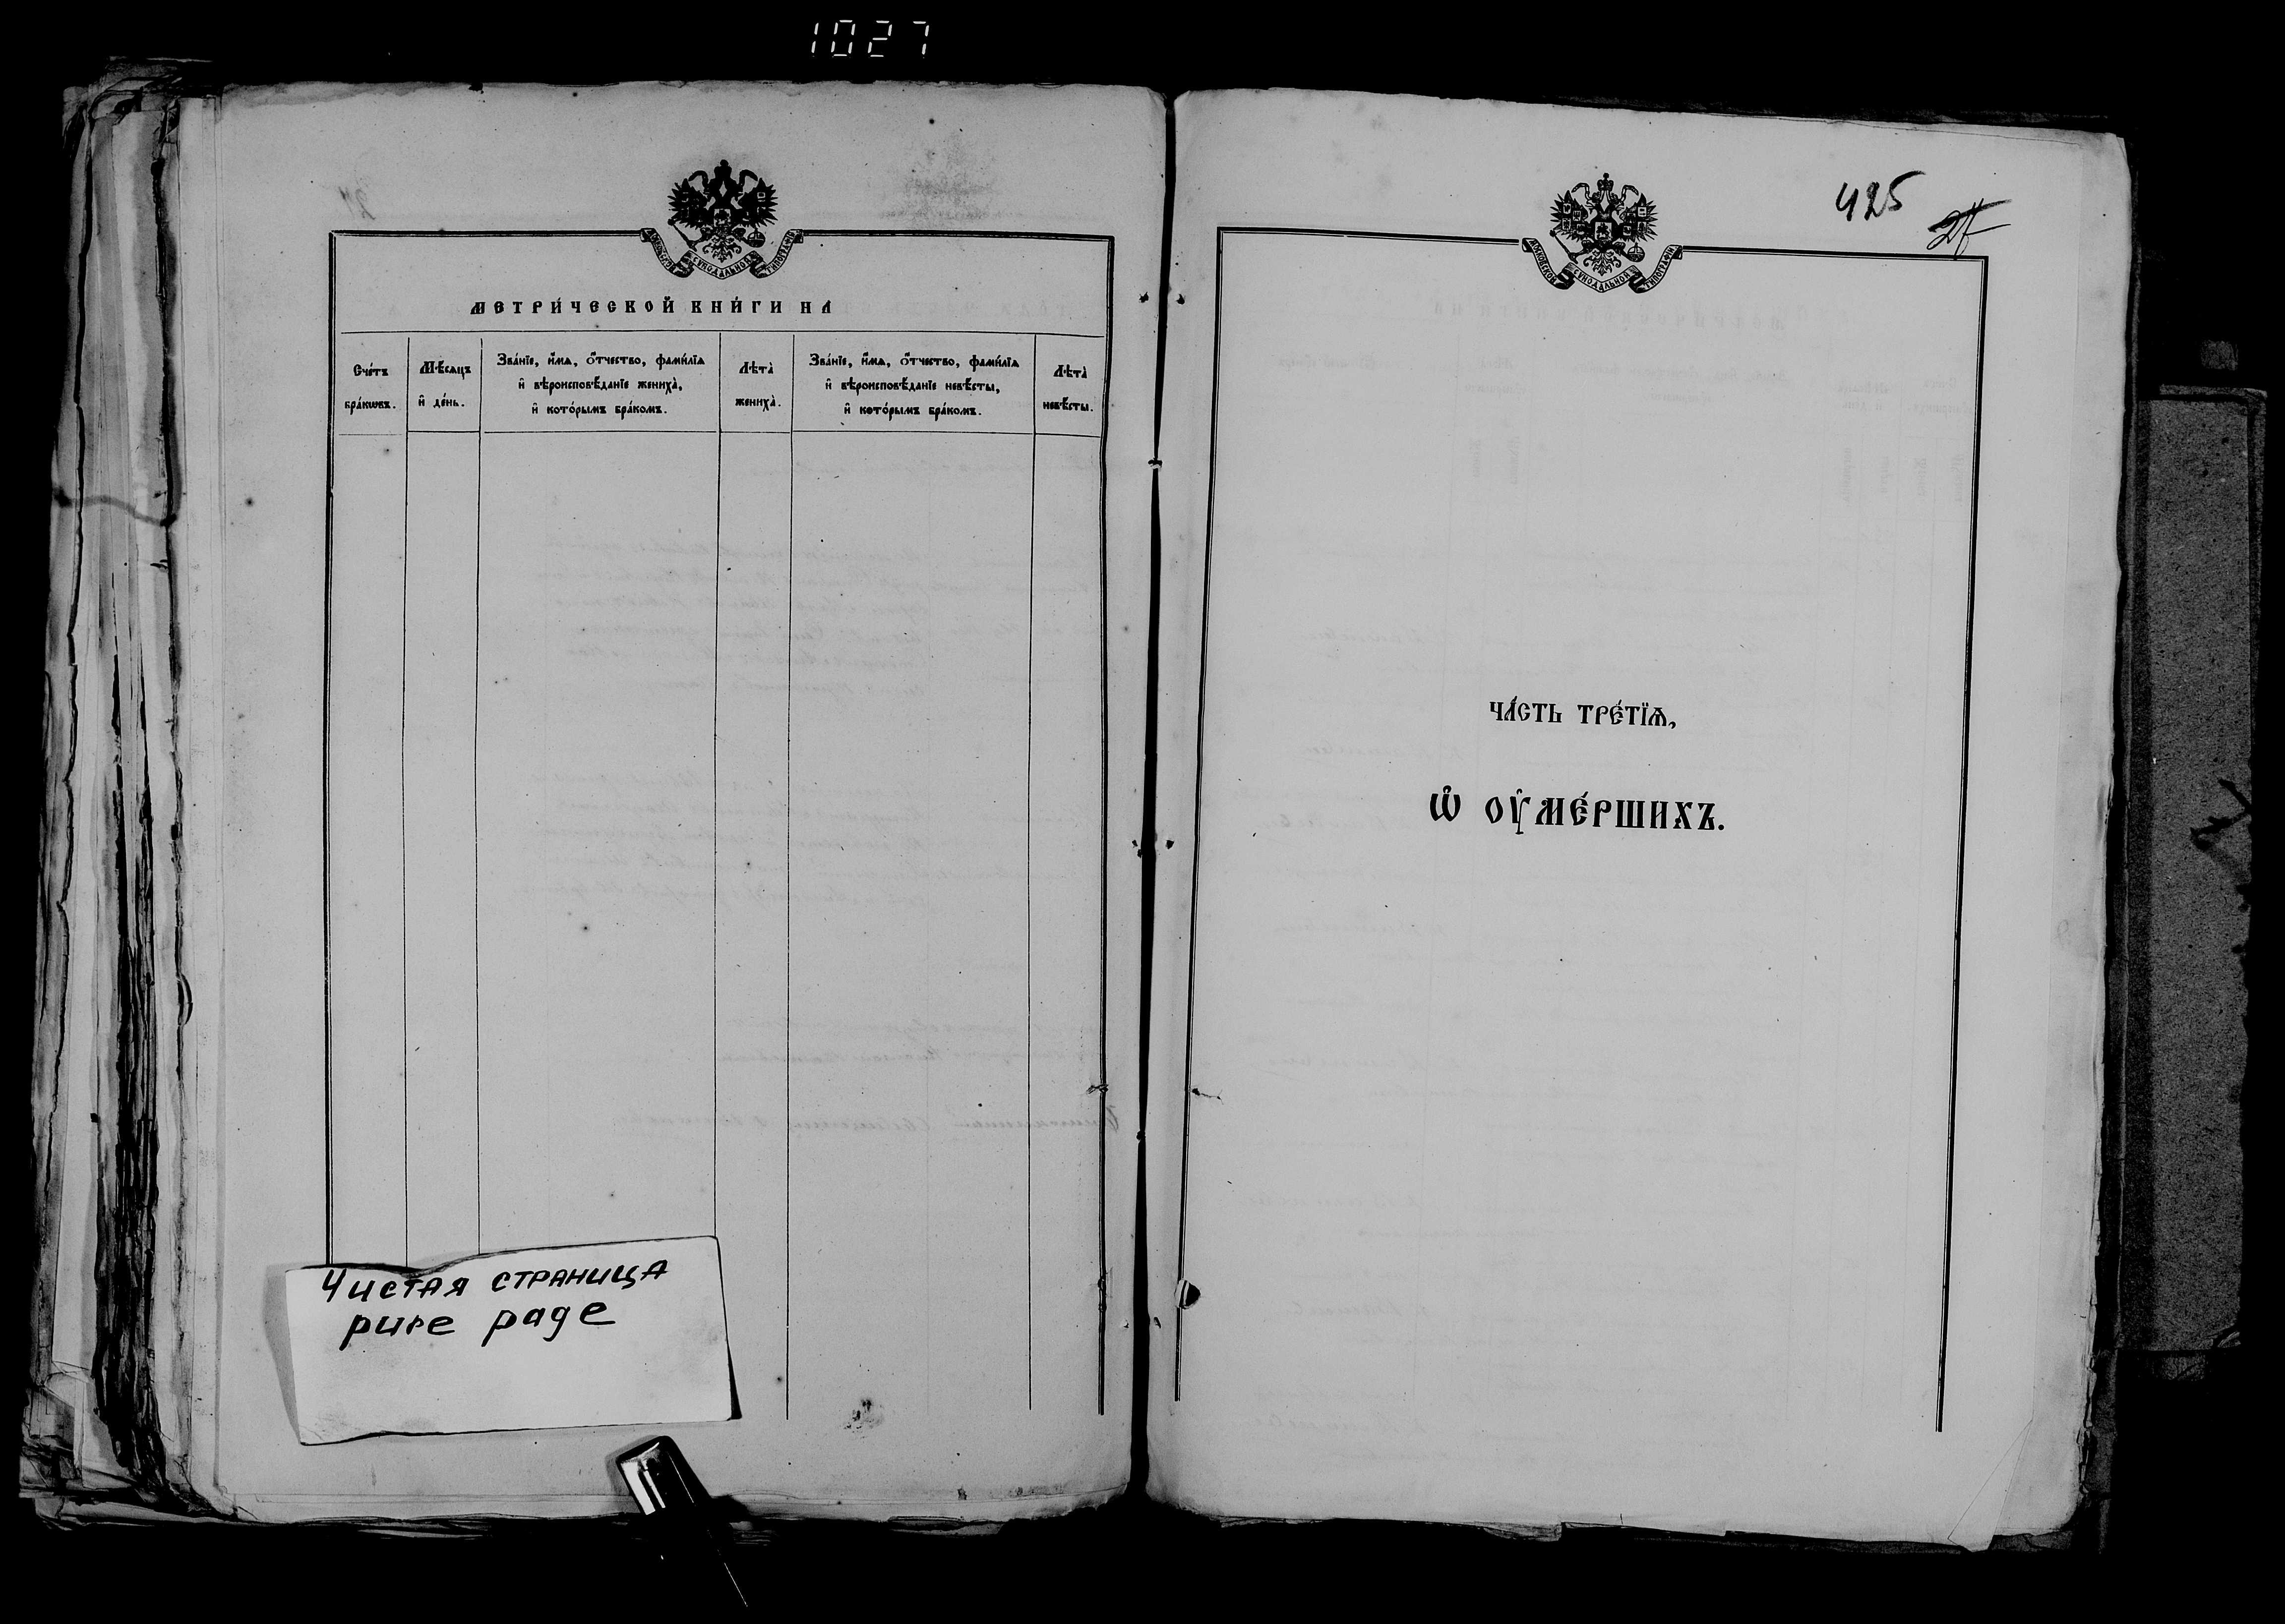 1027
МОСКОВСКОЙ СѴНОДАЛЬНОЙ ТИПОГРАФІИ
МЕТРИ́ЧЕСКОЙ КНИ́ГИ НА
Сче́тъ
бра́кѡвъ.
Мѣ́сяцъ
и҆ де́нь.
Зва́нїе, и҆́мѧ, ѻ҆́тчество, фами́лїѧ
и҆ вѣроисповѣ́данїе жениха̀,
и҆ кото́рымъ бра́комъ.
Лѣ́та
жениха̀.
Зва́нїе, и҆́мѧ, ѻ҆́тчество, фами́лїѧ
и҆ вѣроисповѣ́данїе невѣ́сты,
и҆ кото́рымъ бра́комъ.
Лѣ́та
невѣ́сты.
Чистая страница
pure page
425
МОСКОВСКОЙ СѴНОДАЛЬНОЙ ТИПОГРАФІИ
ЧА́СТЬ ТРЕ́ТЇѦ,
Ѡ҆ ОУ҆МЕ́РШИХЪ.